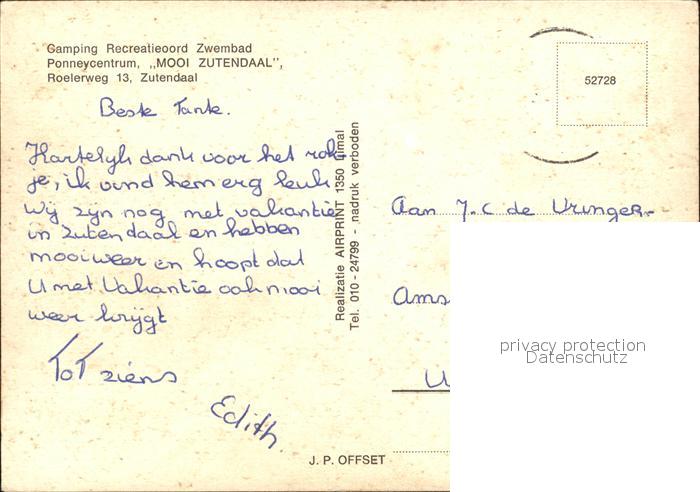 Camping Recreatieoord Zwembad
Ponneycentrum, ,,MOOI ZUTENDAAL",
Roelerweg 13, Zutendaal
52728
Beste Tante.
Hartelijk dank voor het rok
je, ik vind hem erg leuk
Wij zijn nog met vakantie
in Zutendaal en hebben
mooi weer en hoopt dat
U met Vakantie ook mooi
weer krijgt
ToT ziens
Edith.
Realizatie AIRPRINT 1350 Ulmal
Tel. 010 - 24799 - nadruk verboden
Aan J.C de Vringer
Ams
U
privacy protection
Datenschutz
J. P. OFFSET